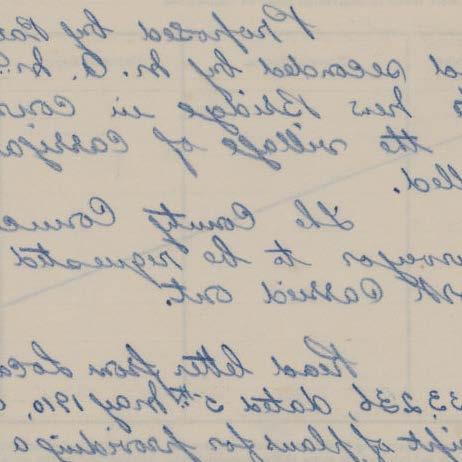 Proposed by Pa
d seconded by Mr. O.
new Bridge in Coun
the village of Carrifa
lled.
The County Counc
urveyor to be requested
ork carried out.
Read letter from Loca
33236 dated 5th May 1910,
ipt of plans for providing a